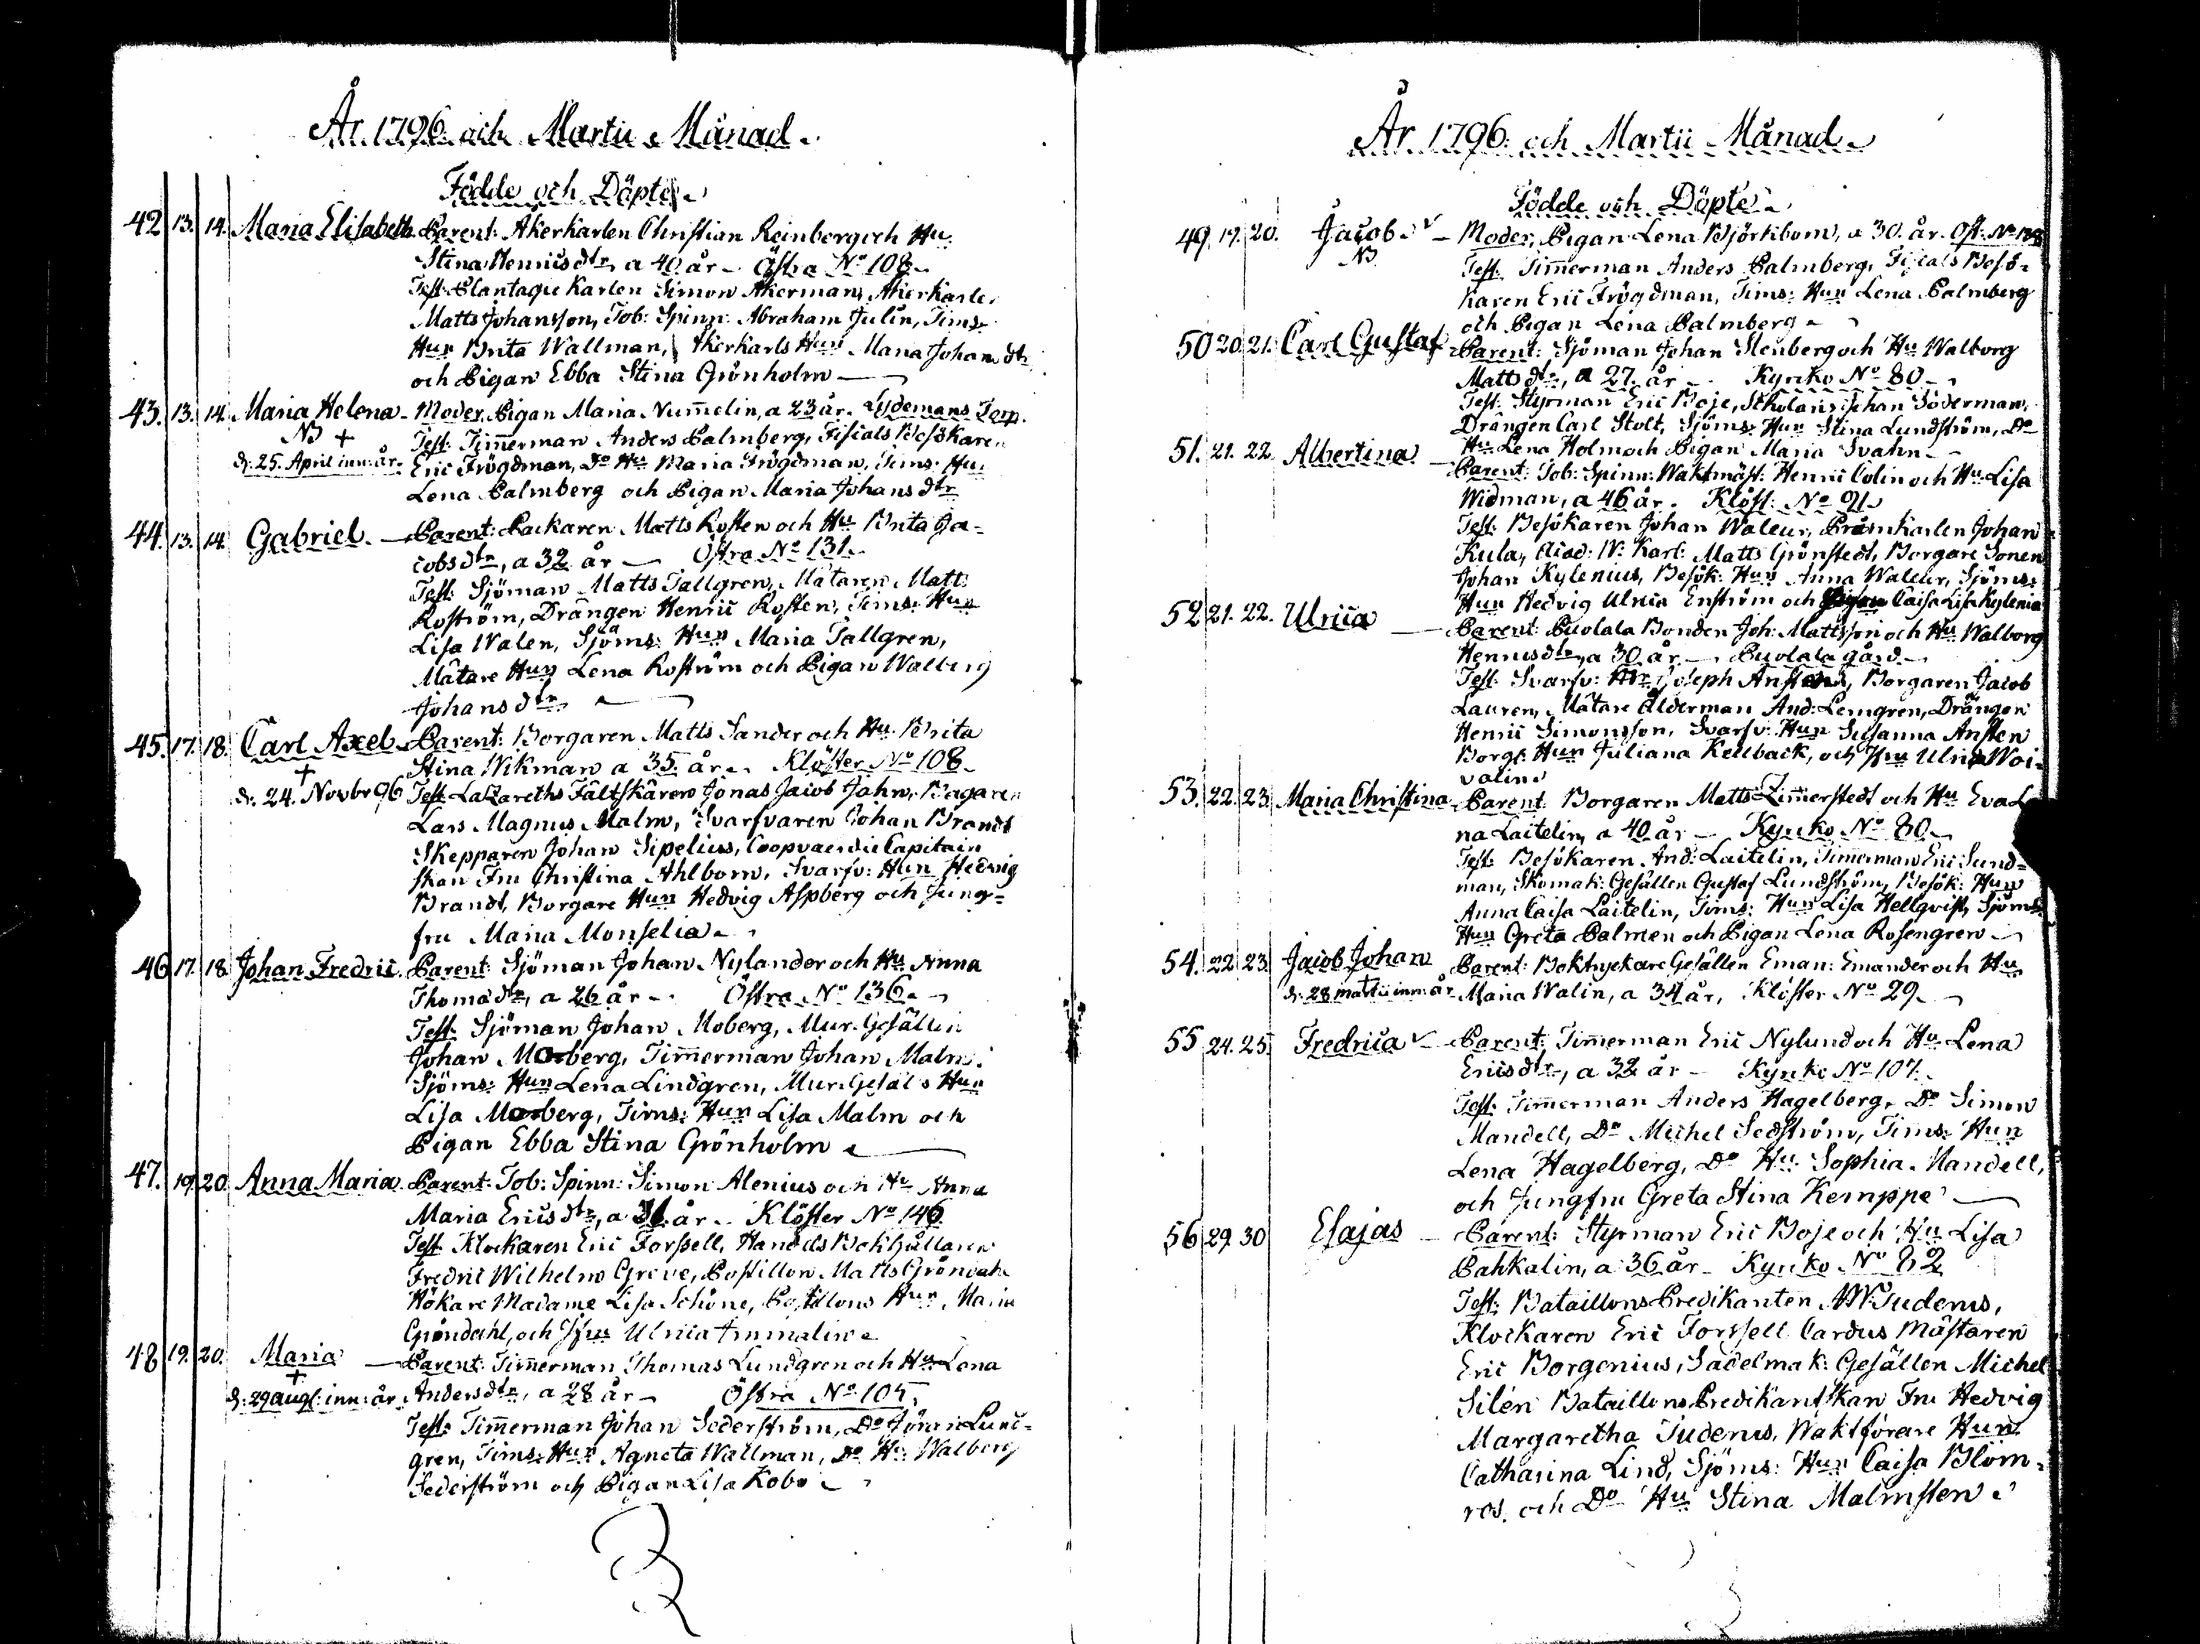 År 1796. och Martii Månad.
Födde och Döpte.
42 13. 14. Maria Elisabeth. Parent: Åkerkarlen Christian Reinberg och Hu:
Stina Henricsdtr, a 40 år. Östra No 108.
Test: Plantagie Karlen Simon Åkerman, Åkerkarlen
Matts Johansson, Tob: Spinn: Abraham Julin, Tims:
Hun Brita Wallman, Åkerkarls Hun Maria Johansdtr
och Pigan Ebba Stina Grönholm
43. 13. 14. Maria Helena. Moder, Pigan Maria Num̄elin, a 23 år. Lydemans Torp.
NB +
Test: Tim̄erman Anders Palmberg, Fiscals Besökaren
d: 25. April inn: år. Eric Frögdman, Do Hu Maria Frögdman, Tims: Hu:
Lena Palmberg och Pigan Maria Johansdtr
44. 13. 14. Gabriel. Parent: Packaren Matts Rosten och Hu Brita Ja-
cobsdtr, a 32 år Östra No 131.
Test: Sjöman Matts Tallgren, Mätaren Matts
Roström, Drängen Henric Rosten, Tims: Hun
Lisa Walen, Sjöms: Hun Maria Tallgren,
Mätare Hun Lena Roström och Pigan Walborg
Johansdtr
45. 17. 18. Carl Axel. Parent: Borgaren Matts Sander och Hu Brita
Stina Wikman a 35. år. Klöster No 108.
+
d: 24. Novbr 96 Test: Lazareths Fältskären Jonas Jacob Jahn, Bagaren
Lars Magnus Malm, Svarfvaren Johan Brandt
Skepparen Johan Sipelius, Coopvaerdie Capitain
skan Fru Christina Ahlbom, Svarfv: Hun Hedvig
Brandt, Borgare Hun Hedvig Aspberg och Jung-
fru Maria Monselia
46 17. 18. Johan Fredric. Parent: Sjöman Johan Nylander och Hu Anna
Thomadtr, a 26 år. Östra No 136.
Test: Sjöman Johan Moberg, Mur. Gesällen
Johan Moberg, Tim̄erman Johan Malm.
Sjöms: Hun Lena Lindgren, Mur. Gesäls Hun
Lisa Moberg, Tims: Hun Lisa Malm och
Pigan Ebba Stina Grönholm
47. 19. 20. Anna Maria. Parent: Tob: Spinn: Simon Alenius och Hu Anna
Maria Ericsdtr, a 36 år. Klöster No 146
Test: Klockaren Eric Forssell, Handels Bokhållaren
Fredric Wilhelm Greve, Postillon Matts Gröndahl
Hökare Madame Lisa Schöne, Postillons Hun Maria
Gröndahl, och Jfru Ulrica
48 19. 20. Maria Parent: Tim̄erman Thomas Lundgren och Hu Lena
+
d: 29 aug: inn: år Andersdtr, a 28 år Östra No 105.
Test: Tim̄erman Johan Sederström, Do Jöran Lund-
gren, Tims: Hun Agneta Wallman, Do Hu Walborg
Sederström och Pigan Lisa Kobo
År 1796. och Martii Månad
Födde och Döpte
49. 19. 20. Jacob Moder, Pigan Lena Björkbom, a 30. år. Öst: No 138
NB
Test: Tim̄erman Anders Palmberg, Fiscals Besö-
karen Eric Frögdman, Tims: Hun Lena Palmberg
och Pigan Lena Palmberg
50 20. 21. Carl Gustaf Parent: Sjöman Johan Stenberg och Hu Walborg
Mattsdtr, a 27. år Kyrko No 80
Test: Styrman Eric Boje, Skolaris Johan Söderman,
Drängen Carl Stolt, Sjöms: Hun Stina Lundström, Do
Hu Lena Holm och Pigan Maria Svahn
51. 21. 22. Albertina Parent: Tob: Spinn: Waktmäst: Henric Colin och Hu Lisa
Widman, a 46 år. Klöst: No 91.
Test: Besökaren Johan Waleur, Pråmkarlen Johan
Kula, Acad: W: Karl: Matts Grönstedt, Borgare Sonen
Johan Kylenius, Besök: Hun Anna Waleur, Sjöms:
Hun Hedvig Ulrica Enström och Caisa Lisa Kylenia
52 21. 22. Ulrica Parent: Puolala Bonden Joh: Mattsson och Hu Walborg
Henricsdtr, a 30 år. Puolala gård
Test: Svarfv: Joseph Ansten, Borgaren Jacob
Lauren, Mätare Ålderman And: Lemgren, Drängen
Henric Simonsson, Svarfv: Hun Susanna Ansten
Borg: Hun Juliana Kellback, och Jfru Ulrica Woi-
valin
53. 22. 23. Maria Christina Parent: Borgaren Matts Zim̄erstedt och Hu Eva Le
na Laitelin, a 40 år Kyrko No 80
Test: Besökaren And: Laitelin, Tim̄erman Eric Sund-
man, Skomak: Gesällen Gustaf Lundström, Besök: Hun
Anna Caisa Laitelin, Tims: Hun Lisa Hellqvist, Sjöms:
Hun Greta Palmen och Pigan Lena Rosengren
54. 22 23 Jacob Johan Parent: Boktryckare Gesällen Eman: Emander och Hu
+
d: 28 martii inn: år Maria Walin, a 34 år, Klöster No 29.
55 24. 25. Fredrica Parent: Tim̄erman Eric Nylund och Hu Lena
Ericsdtr, a 32 år Kyrko No 107.
Test: Tim̄erman Anders Hagelberg, Do Simon
Mandell, Do Michel Sedström, Tims: Hun
Lena Hagelberg, Do Hu Sophia Mandell,
och Jungfru Greta Stina Kemppe
56 29 30 Esajas Parent: Styrman Eric Boje och Hu Lisa
Pahkalin, a 36 år Kyrko No 82
Test: Bataillons Predikanten Juderus,
Klockaren Eric Forssell Cardus Mästaren
Eric Borgenius, Sadelmak: Gesällen Michel
Silén Bataillons Predikantskan Fru Hedvig
Margaretha Juderus, Waktförare Hun
Catharina Lind, Sjöms: Hun Caisa Blom-
ros. och Do Hu Stina Malmsten